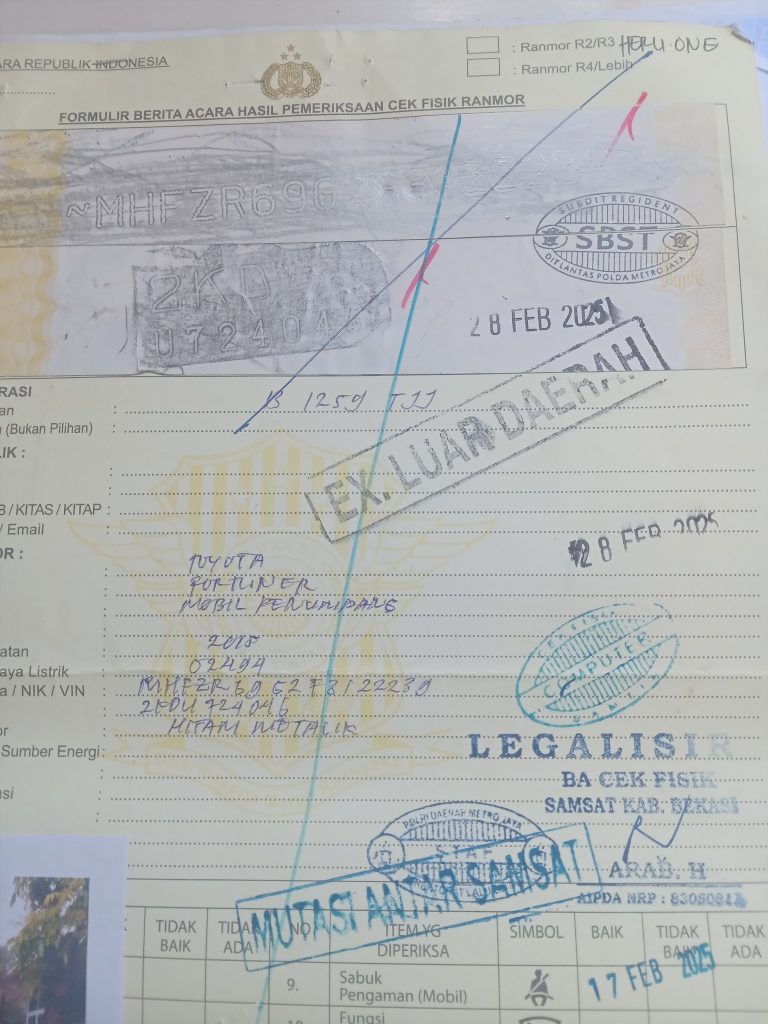 ARA REPUBLIK INDONESIA
: Ranmor R2/R3
HERU-ONE
: Ranmor R4/Lebih
FORMULIR BERITA ACARA HASIL PEMERIKSAAN CEK FISIK RANMOR
~MHFZR69G
SUBDIT REGIDENT
SBST
DITLANTAS POLDA METRO JAYA
2KD
U72404
28 FEB 2025
RASI
an : B 1259 TJJ
(Bukan Pilihan) :
EX. LUAR DAERAH
LIK :
B / KITAS / KITAP :
/ Email :
28 FEB 2025
OR :
: TOYOTA
: FORTUNER
: MOBIL PENUMPANG
atan : 2008
aya Listrik : 02494
a / NIK / VIN : MHFZR69G278122239
: 2KDU724046
or : HITAM METALIK
Sumber Energi :
COMPUTER
LEGALISIR
BA CEK FISIK
SAMSAT KAB. BEKASI
asi
POLRI DAERAH METRO JAYA
ARAB, H
AIPDA NRP :
MUTASI ANTAR SAMSAT
TIDAK BAIK
TIDAK ADA
NO
ITEM YG DIPERIKSA
SIMBOL
BAIK
TIDAK BAIK
TIDAK ADA
17 FEB 2025
9.
Sabuk
Pengaman (Mobil)
10.
Fungsi